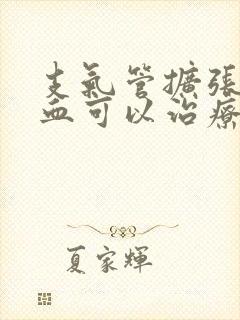 支氣管擴張
血可以治療
夏家輝